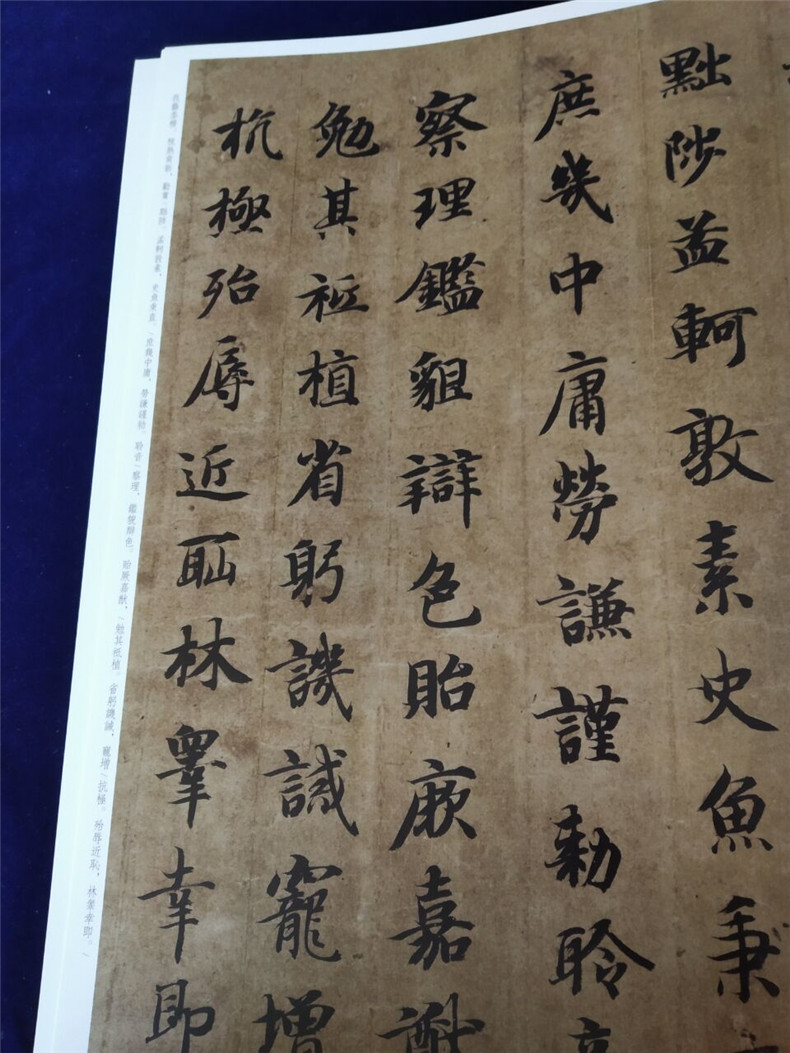 黜陟孟軻敦素史魚秉
庶幾中庸勞謙謹勑聆音
察理鑑貌辯色貽厥嘉猷
勉其祗植省躬譏誡寵增
杭極殆辱近耻林睪幸即
我藝黍稷，税熟貢新，勸賞/黜陟。孟軻敦素，史魚秉直。/庶幾中庸，勞謙謹勑。聆音/察理，鑑貌辯色。貽厥嘉猷，/勉其祗植。省躬譏誡，寵增/抗極。殆辱近恥，林睪幸即。/